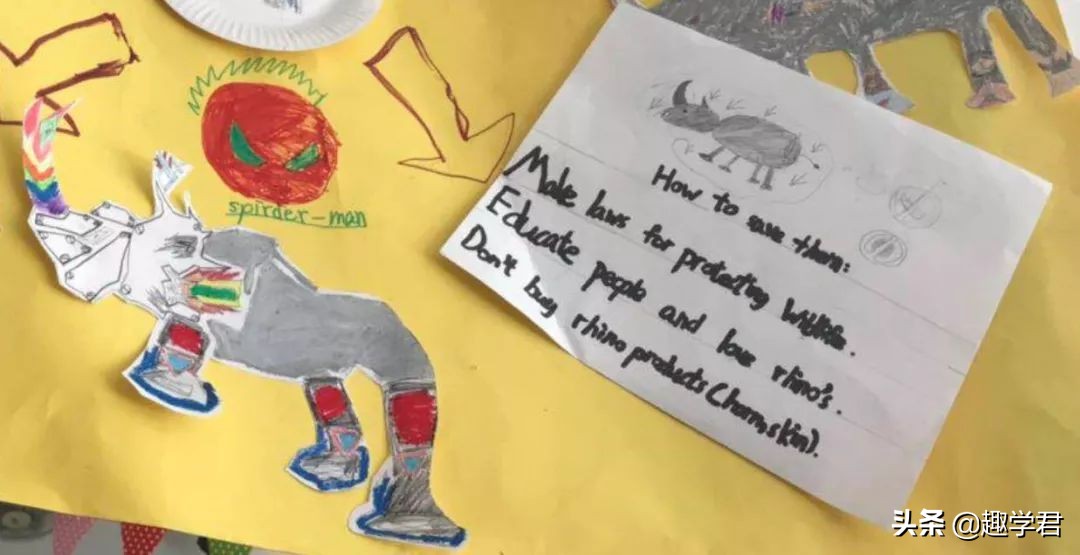 spirder-man
How to save them:
Make laws for protecting wildlife.
Educate people and love rhino's.
Don't buy rhino products (horn, skin).
头条 @趣学君